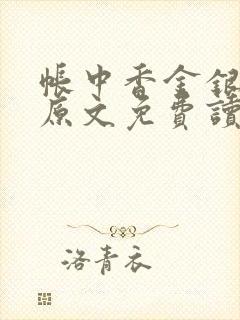 帳中香金銀
原文免費讀
洛青衣